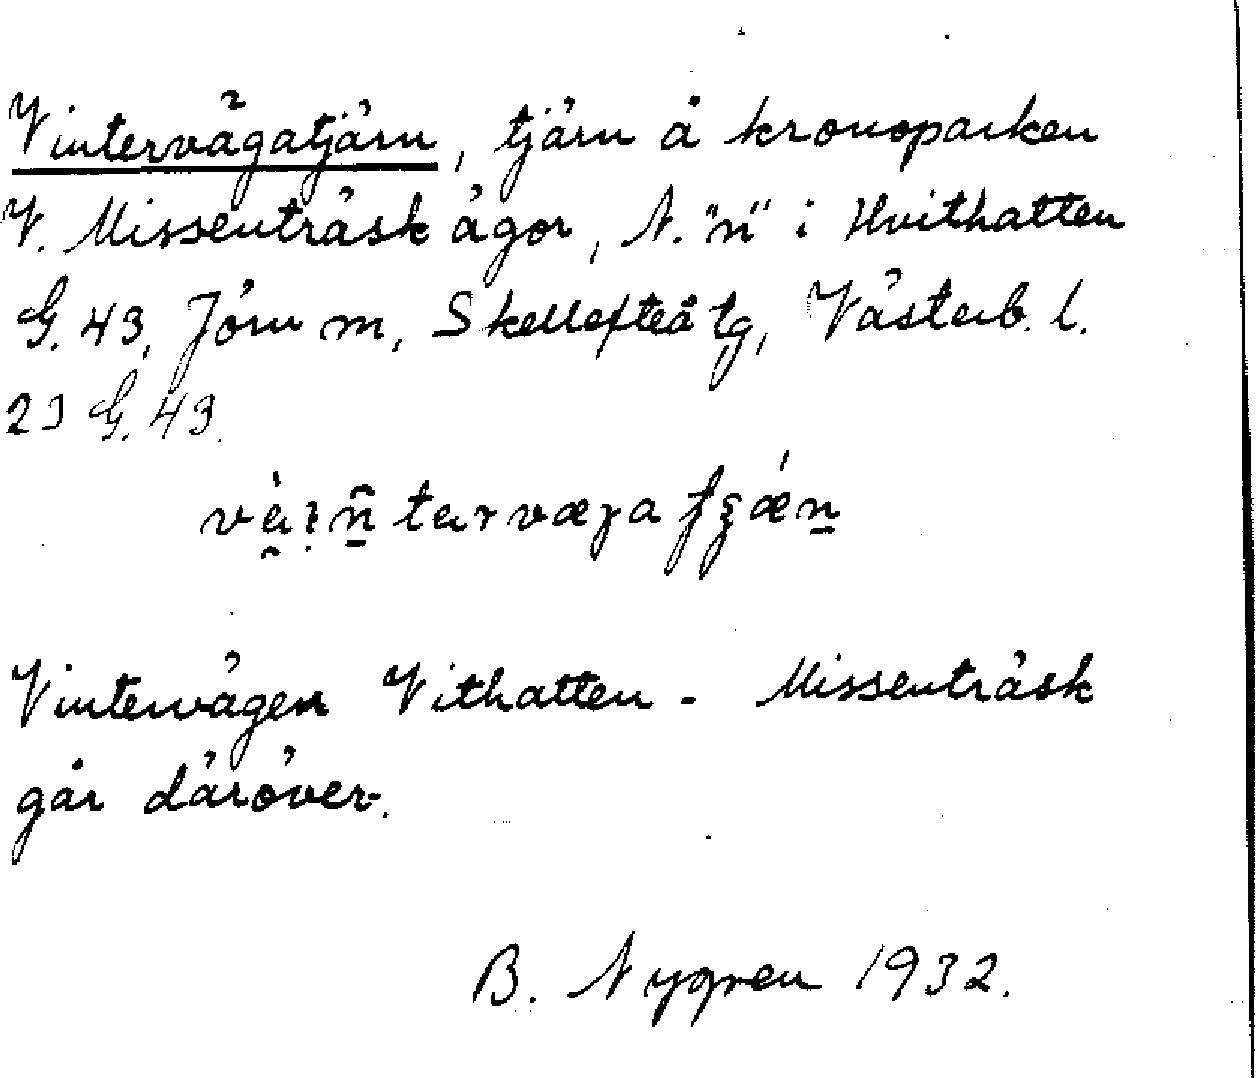 Vintervägatjärn, tjärn å kronoparken
V. Missenträsk ägor, N. "n" i Hvithatten
G. 43, Jörn m, Skellefteå tg, Västerb. l.
23 G. 43.
Vintervägen Vithatten - Missenträsk
går däröver.
B. Nygren 1932.